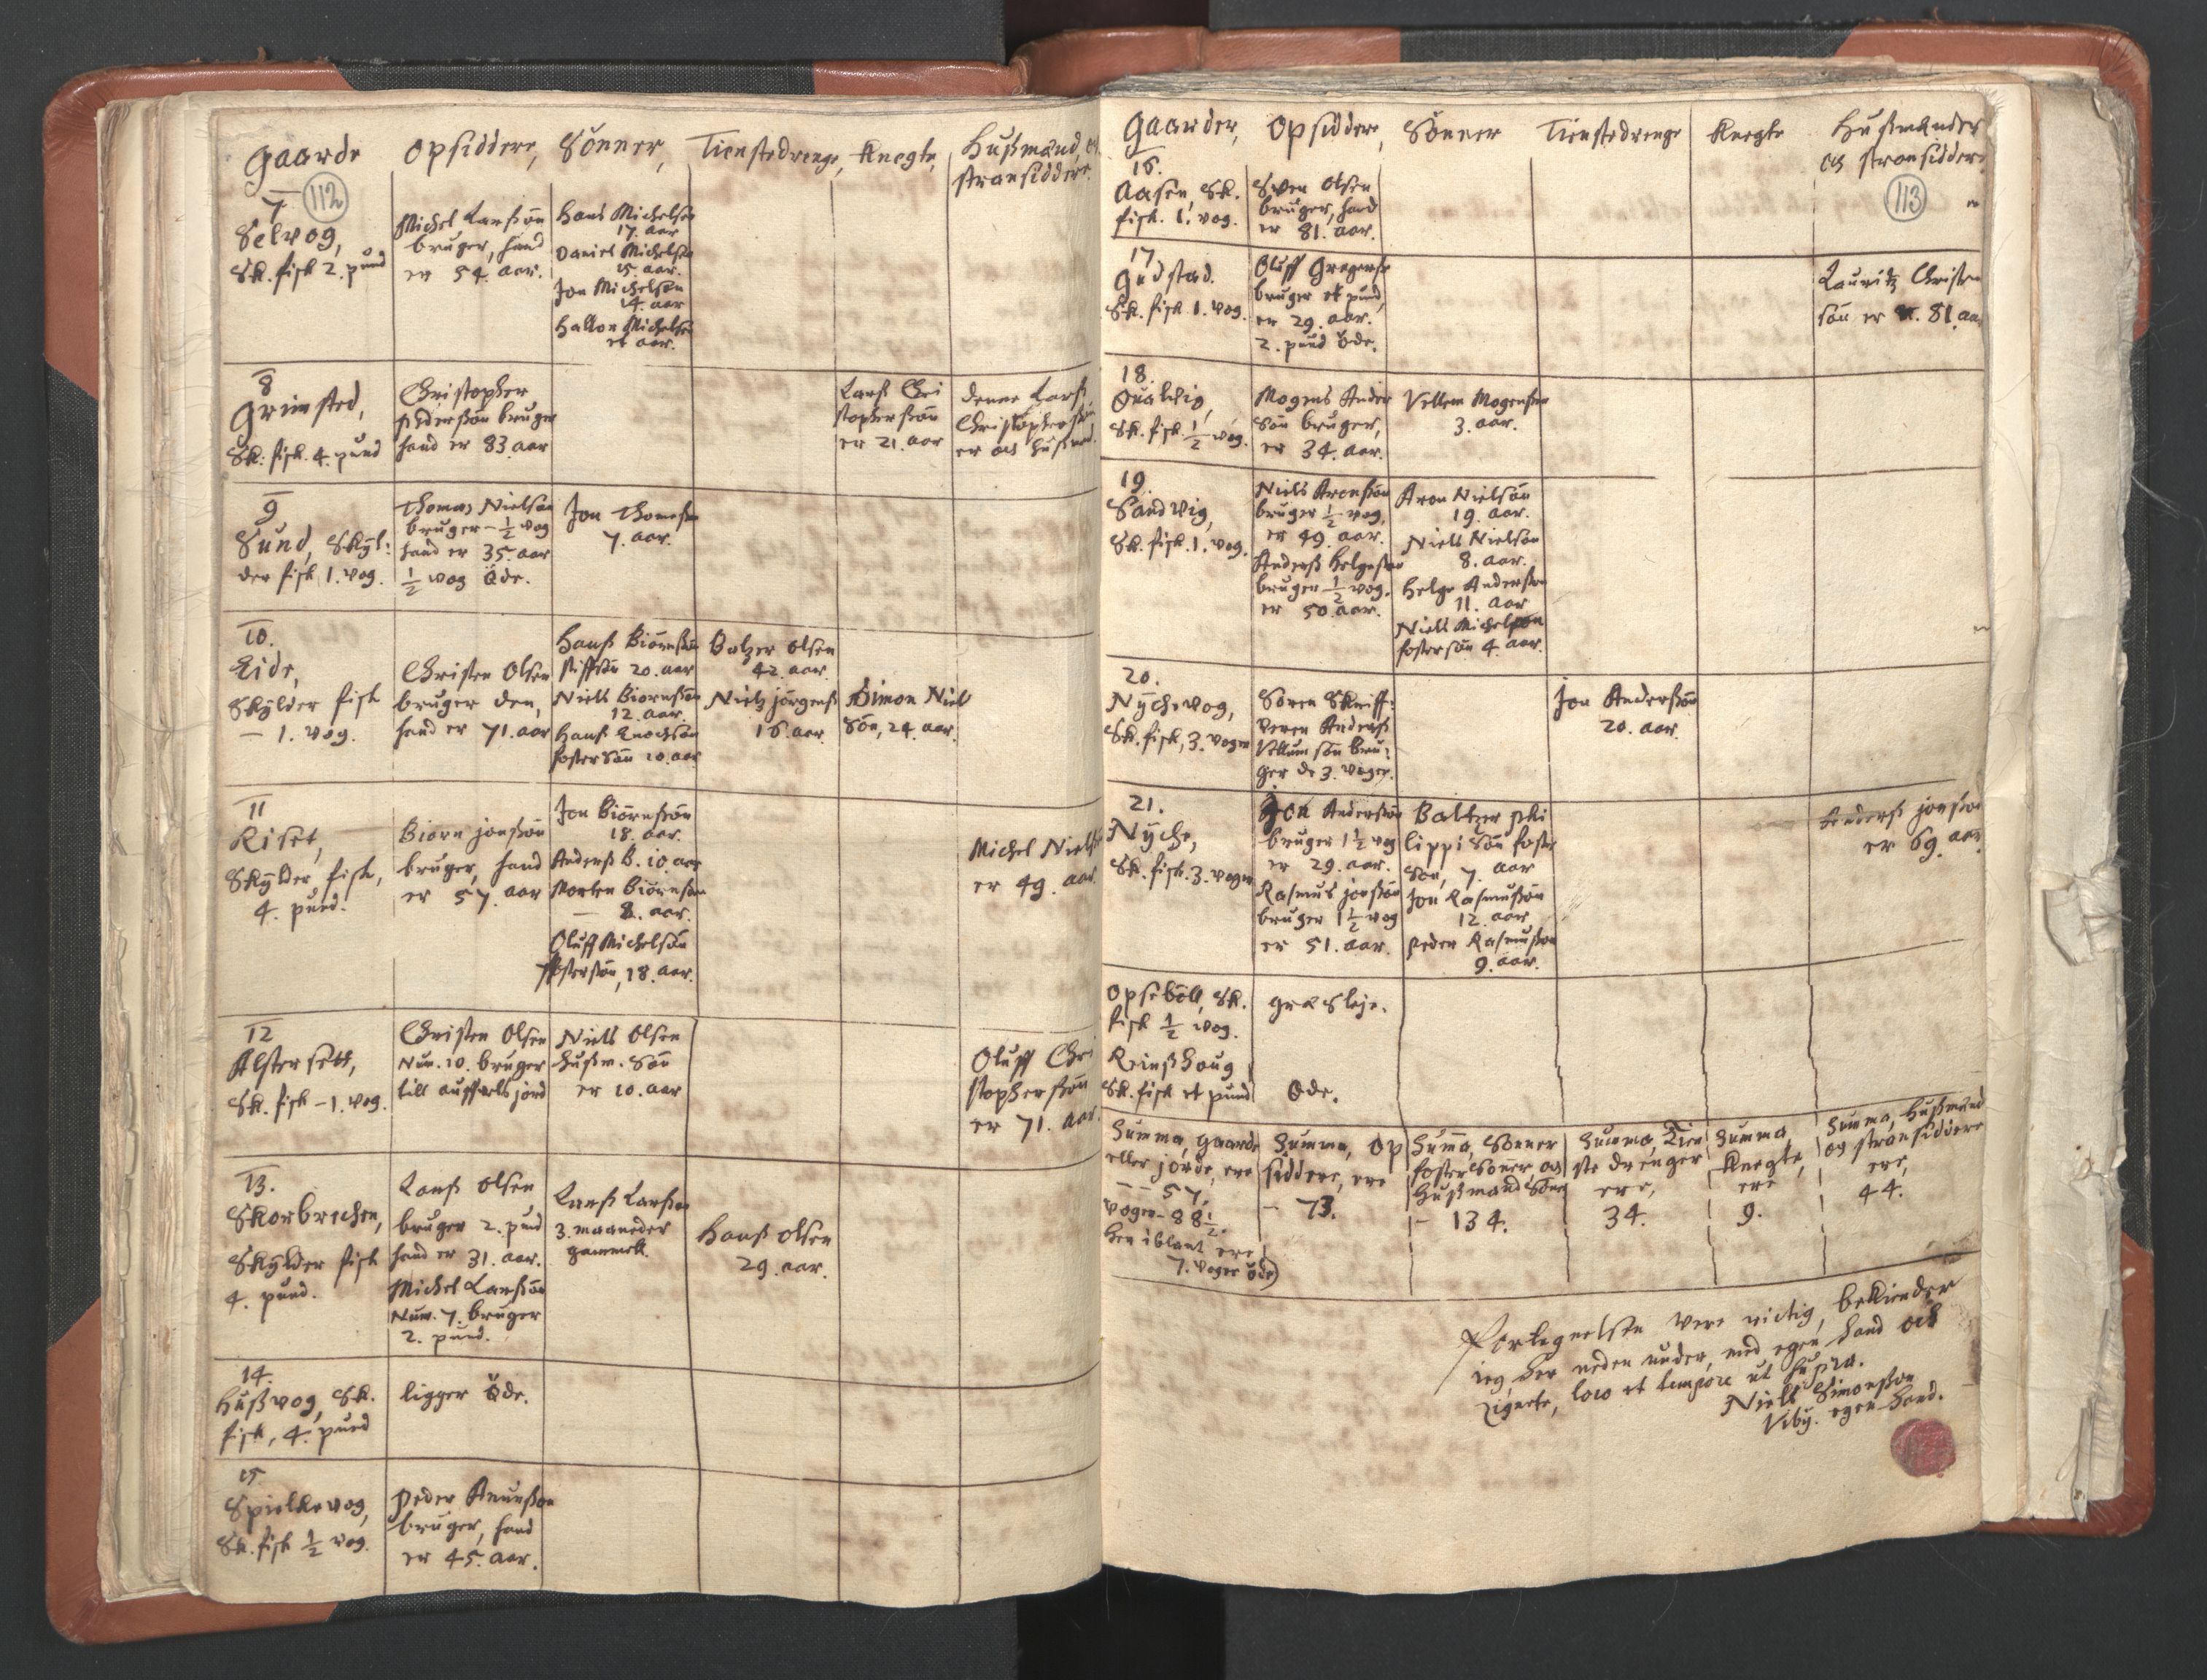 Gaarde
Opsiddere,
Sönner,
Tienstedrenge,
Knegte,
Hußmænd, og
stransiddere
112
7
Selvog,
Sk. fisk 2. pund
Michel Larßön
bruger, hand
er 54. aar.
Hans Michelsön
17. aar
Daniel Michelsön
15. aar.
Jon Michelsön
14. aar
Hallon Michelsön
et aar.
8
Grimsted,
Sk: fisk. 4. pund
Christopher
Pederßön bruger
hand er 83 aar
Larß Chri
stopherßön
er 21. aar
denne Larß
Christopherßön
er och hußmand.
9
Sund, Skyl:
der fisk 1. vog.
Thomas Nielsön
bruger - ½ vog
hand er 35. aar
½ vog Öde.
Jon Thomeßön
7. aar.
10.
Eide,
Skylder fisk
- 1. vog.
Christen Olsen
bruger den,
hand er 71. aar
Hanß Biörnßön
stiffsön 20. aar
Niels Biörnßön
12. aar.
Hanß Enochsön
fostersön 10. aar
Balzer Olsen
42. aar.
Nielz Jörgenß
16. aar.
Simon Niel
sön, 24. aar.
11
Riset,
Skylder fisk,
4. pund.
Biörn Jonßön
bruger, hand
er 57. aar
Jon Biörnßön
18. aar.
Anderß B. 10 aar
Morten Biörnßön
— 8. aar.
Oluff Michelsön
fostersön, 18. aar.
Michel Nielsön
er 49. aar.
12
Alstersett,
Sk. fisk - 1. vog.
Christen Olsen
Num. 10. bruger
till auffvels jord
Niels Olsen
hußm. Sön
er 10. aar
Oluff Chri
stopherßön
er 71. aar.
13.
Skorbrechen,
Skylder fisk
4. pund.
Larß Olsen
bruger 2. pund
hand er 31. aar.
Michel Larßön
Num. 7. bruger
2. pund.
Larß Larßön
3. maaneder
gammell.
Hanß Olsen
29. aar.
14.
Hußvog, Sk.
fisk, 4. pund
ligger Öde.
15
Spielkevog,
Sk. fisk ½ vog.
Peder Amunßön
bruger, hand
er 45. aar.
Gaarder,
Opsiddere,
Sönner
Tienstedrenge
Knegte
Hußmænder
og stransiddere
113
16.
Aasen, Sk.
fisk. 1. vog.
Sven Olsen
bruger, hand
er 81. aar.
17.
Gudstad.
Sk. fisk 1. vog.
Oluff Gregerße
bruger et pund,
er 29. aar.
2. pund öde.
Lauritz Christen
sön er 81. aar
18.
Qualvig,
Sk. fisk ½ vog.
Mogens Ander
sön bruger,
er 34. aar.
Villem Mogensön
3. aar.
19.
Sandvig,
Sk. fisk. 1. vog.
Niels Aronßön
bruger ½ vog.
er 49. aar.
Anderß Helgesön
bruger ½ vog.
er 50. aar.
Aron Nielsön
19. aar.
Niels Nielsön
8. aar.
Helge Anderßön
11. aar
Niels Michelsön
fostersön 4. aar.
20.
Nychevog,
Sk. fisk, 3. voger
Soren Skriff:
veren Anderß
Villumsön bru:
ger de 3. voger.
Jon Anderßön
20. aar.
21.
Nyche,
Sk. fisk. 3. voger
Jon Anderßön
bruger 1½ vog
er 29. aar.
Rasmus Jonßön
bruger 1½ vog
er 51. aar.
Baltzer Phi
lippi Sön foster
Sön, 7. aar
Jon Rasmußön
12. aar
Peder Rasmußön
9. aar.
Anderß Jonßön
er 69. aar
Opseböll, Sk.
fisk ½ vog.
græsleje.
Reinßhoug
Sk. fisk et pund
Öde.
Summa, gaarde
eller jorde, ere
- - 57.
Voger - 88½.
her iblant ere
7. voger öde)
Summa, Op
siddere, ere
- 73.
Summa, Sönner
fostersöner, og
Hußmænd Söner
- 134.
Summa, Tien
ste drenger
ere,
34.
Summa,
Knegte,
ere
9.
Summa, Hußmænd
og stransiddere
ere,
44.
Fortegnelsen vere rictig, bekiender
ieg her neden under, med egen hand och
Zignete, loco et tempore ut supra.
Niels Simonßön
Viby. egen hand.